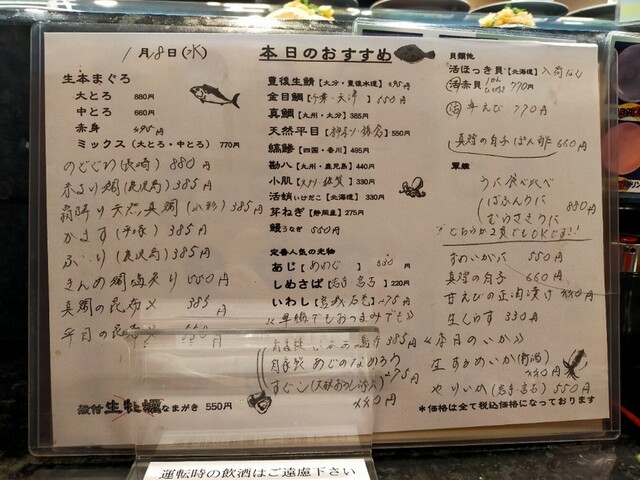 1月8日(水)
本日のおすすめ
生本まぐろ
大とろ 880円
中とろ 660円
赤身 495円
ミックス (大とろ・中とろ) 770円
のどぐろ(長崎) 880円
385円
霜降り天然真鯛 385円
かます(平塚) 385円
ぶり(鹿児島) 385円
きんめ鯛炙り 550円
真鯛の昆布〆 385円
平目の昆布〆
殻付生牡蠣なまがき 550円
豊後生鯖【大分・豊後水道】495円
金目鯛 550円
真鯛【九州・大分】385円
天然平目 550円
縞鯵【四国・香川】495円
勘八【九州・鹿児島】440円
小肌【九州・佐賀】330円
活蛸いけだこ【北海道】330円
芽ねぎ【静岡産】275円
鰻うなぎ 550円
定番人気の光物
あじ 330円
しめさば 220円
いわし 275円
≪単品でもおつまみでも≫
385円
自家製 あじのなめろう
すじこ 475円
440円
貝類他
活ほっき貝【北海道】入荷なし
活赤貝 770円
活 車えび 770円
真鱈の白子ぽん酢 660円
軍艦
うに食べ比べ
ばふんうに
むらさきうに 880円
※どちらか2貫でもOKです!!
550円
真鱈の白子 660円
甘えびの正油漬け 440円
生しらす 330円
≪本日のいか≫
生するめいか
440円
やりいか 550円
*価格は全て税込価格になっております
運転時の飲酒はご遠慮下さい